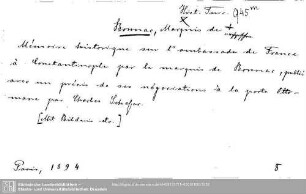 Hist. Turc. 945m
Bonnac, Marquis de
Mémoire historique sur l'ambassade de France
à Constantinople par le marquis de Bonnac, publié
avec un précis de ses négociations à la porte Otto-
mane par Charles Schefer.
[Mit Bildnis etc.]
Paris, 1894 8